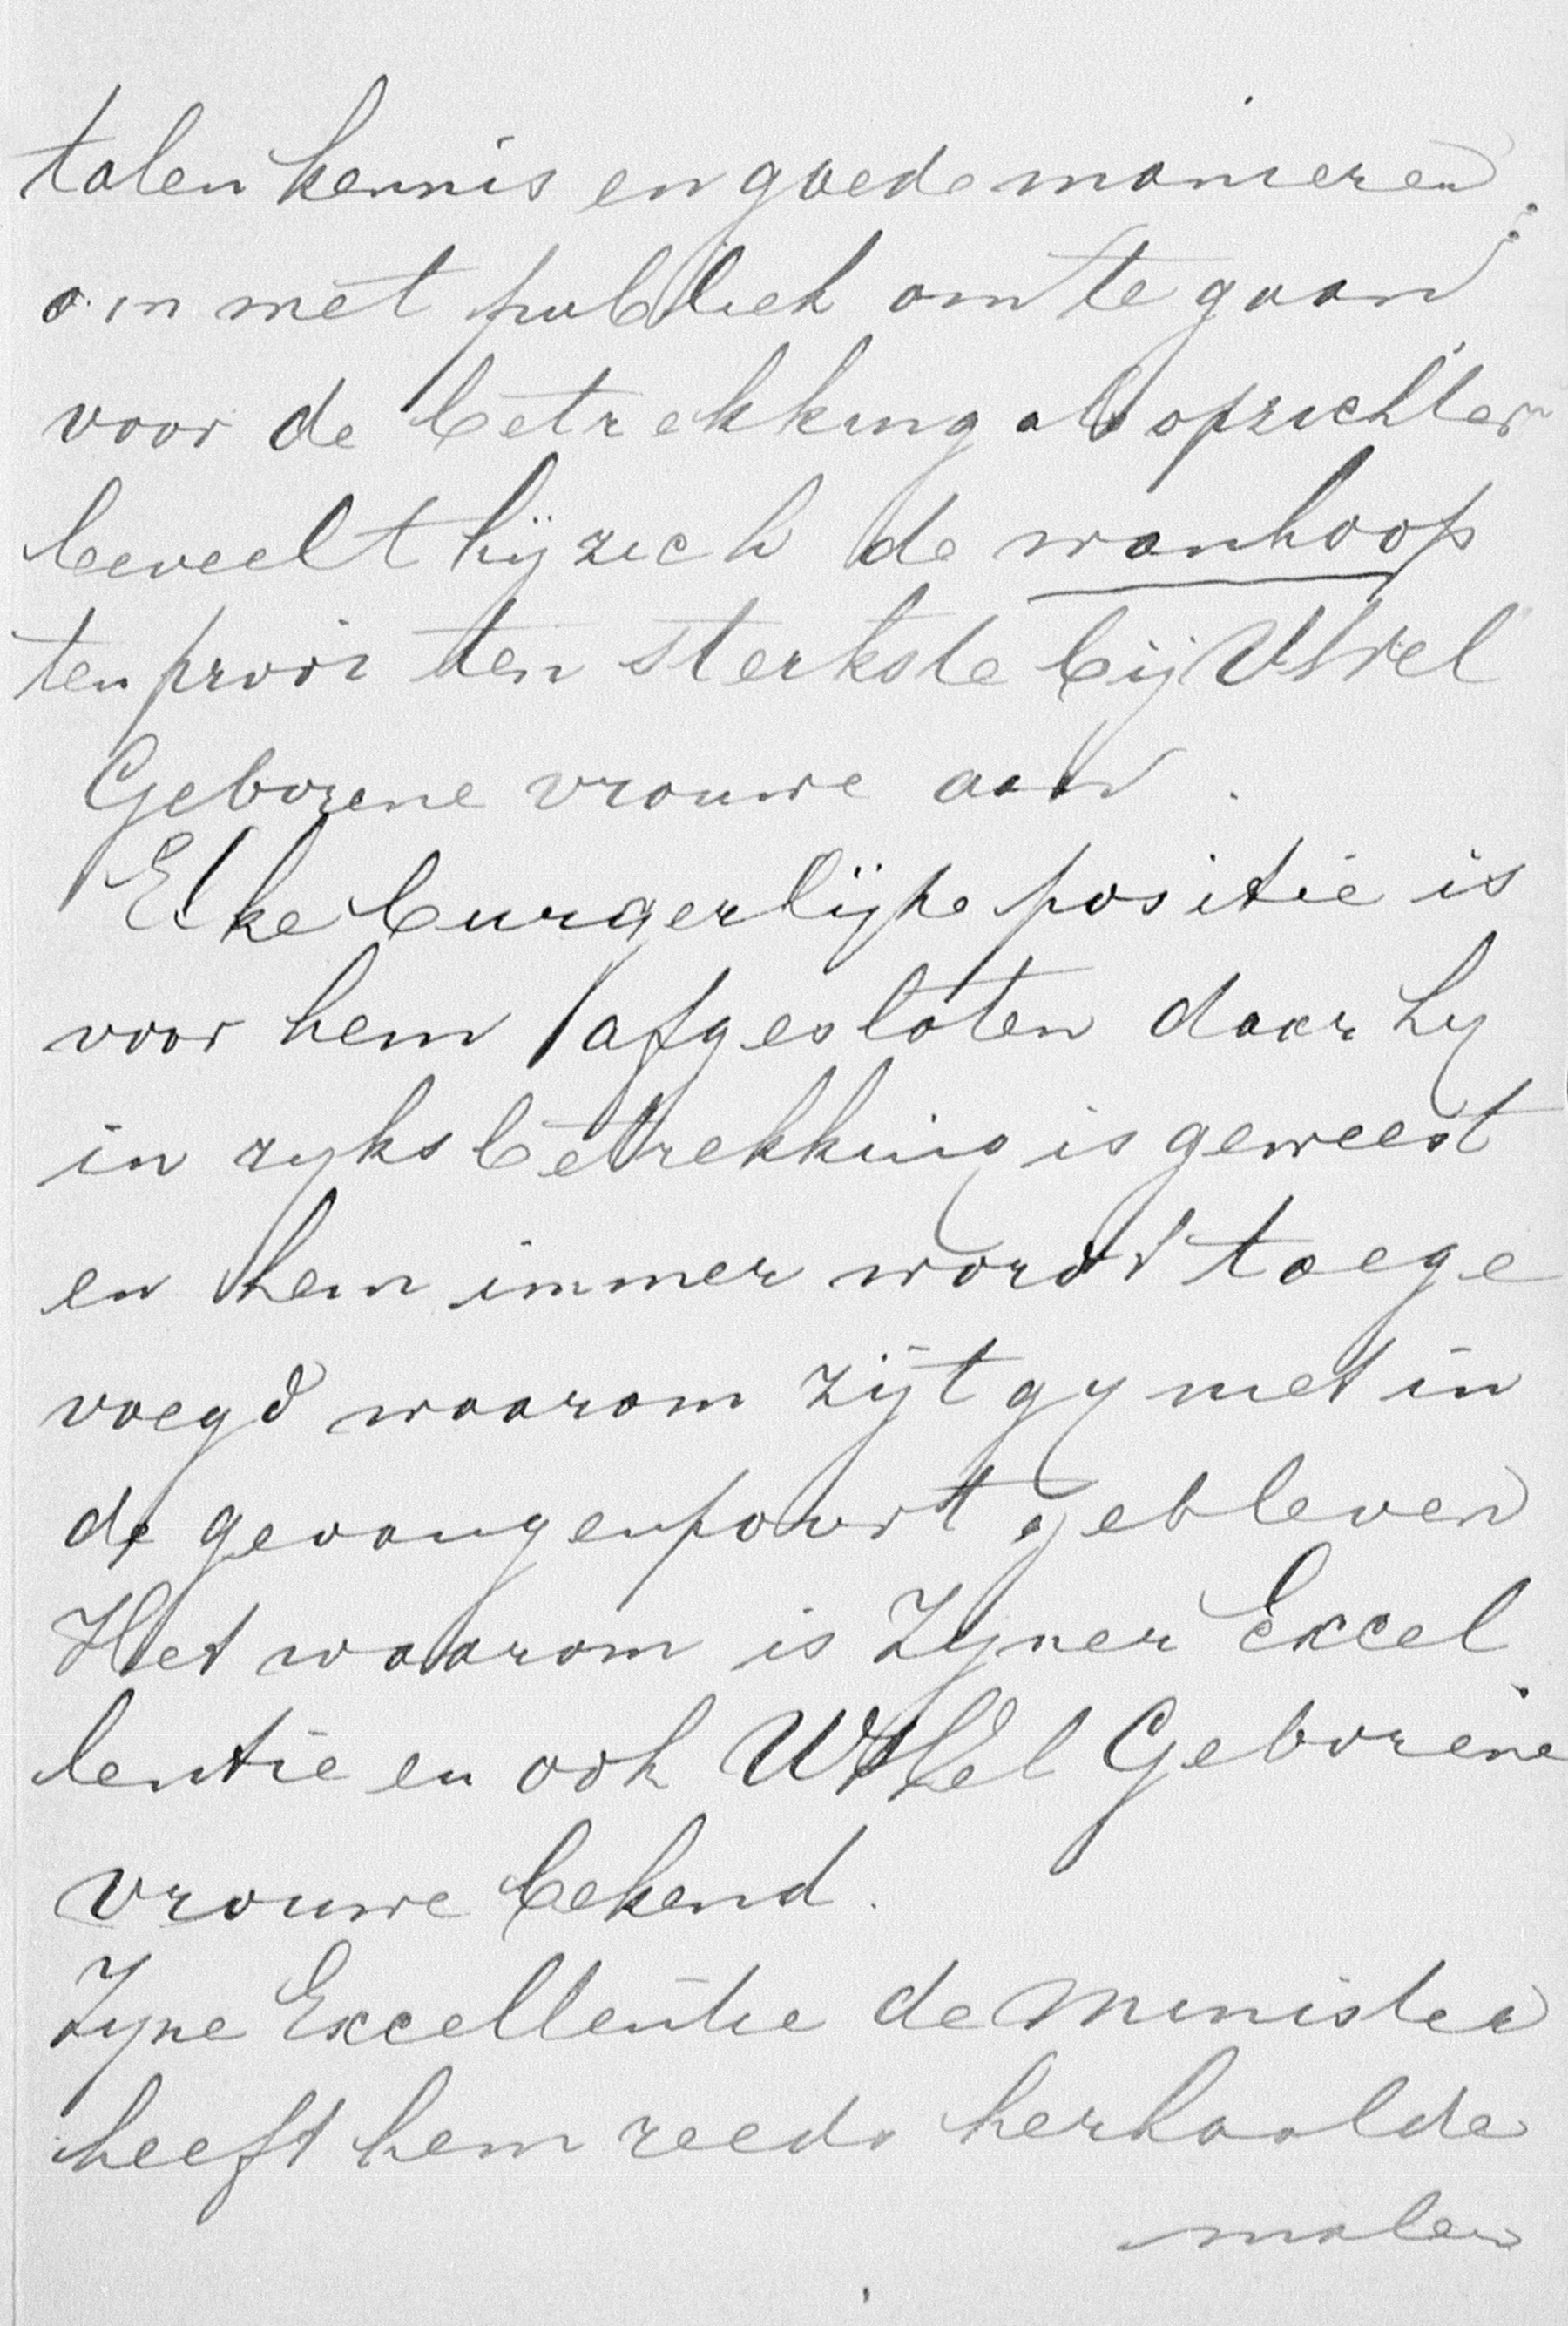 talen kennis en goede manieren
om met publiek om te gaan
voor de betrekking als opzichter
beveelt hij zich de wanhoop
ten prooi ten sterkste bij UWel
Geborene vrouwe aan.
Elke burgerlijke positie is
voor hem afgesloten daar hy
in ryks betrekking is geweest
en hem immer wordt toege
voegd waarom zijt gy niet in
de gevangenpoort gebleven
Het waarom is Zyner Excel
lentie en ook UWel Geborene
vrouwe bekend.
Zyne Excellentie de Minister
heeft hem reeds herhaalde
malen